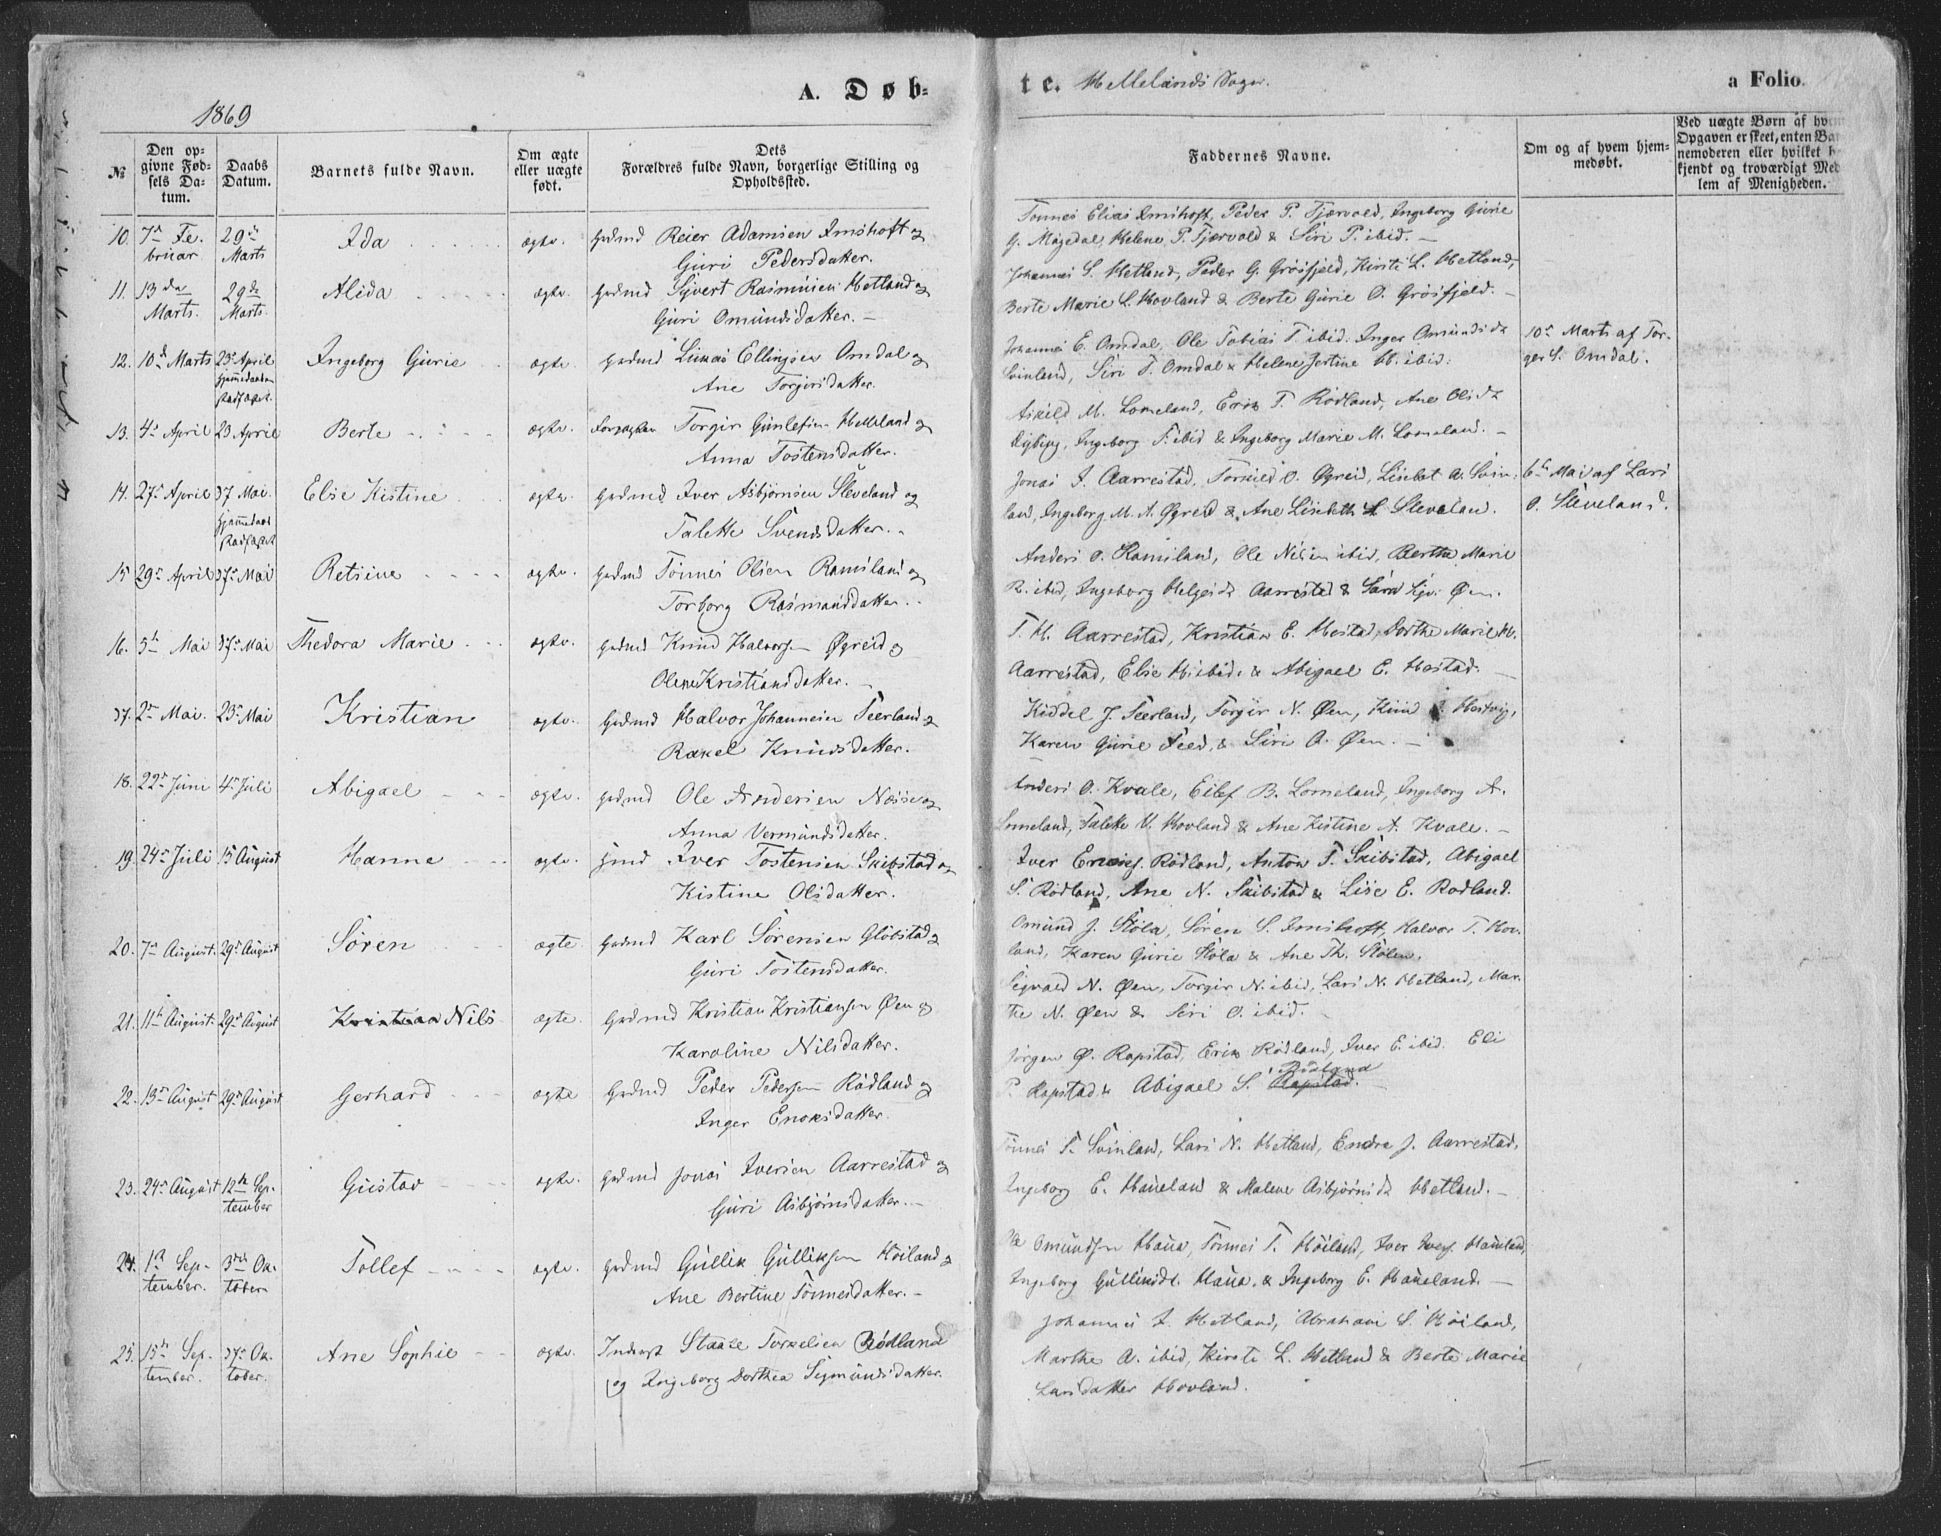 1869
A. Døb-
te. Hellelands Sogn.
a Folio.
№
Den opgivne Fødsels Datum.
Daabs Datum.
Barnets fulde Navn.
Om ægte eller uægte født.
Dets Forældres fulde Navn, borgerlige Stilling og Opholdssted.
Faddernes Navne.
Om og af hvem hjemmedøbt.
Ved uægte Børn af hvem Opgaven er skeet, enten Barnemoderen eller hvilket kjendt og troværdigt Medlem af Menigheden.
10. 7de Februar 29de Marts Ida ægte. Grdmd Reier Adamsen Imshoft og
Guri Pedersdatter.
Tønnes Elias Imshoft, Peder P. Tjærvold, Ingeborg Gurie
G. Møgedal, Helene P. Tjærvold & Siri P. ibid. –
11. 13de Marts. 29de Marts. Alida ægte. Grdmd Sivert Rasmusen Hetland og
Guri Omundsdatter. –
Johannes S. Hetland, Peder G. Grøsfjeld, Kirsti L. Hetland,
Berte Marie L. Hovland & Berte Gurie O. Grøsfjeld. –
12. 10de Marts 23de April Hjemmedaaben stadfæstet. Ingeborg Gurie ægte. Grdmd Lukas Ellingsen Omdal og
Ane Torgirsdatter.
Johannes E. Omdal, Ole Tobias T. ibid. Inger Omundsdt
Svinland, Siri T. Omdal & Helene Jertine H. ibid.
10de Marts af Torger S. Omdal.
13. 4de April 23 April Berte ægte. Forpagter Torgir Gunlefsen Helleland og
Anna Tostensdatter.
M. Lomeland, Erik T. Rødland, Ane Olsdt
Ingeborg T. ibid & Ingeborg Marie M. Lomeland. –
14. 27de April 17 Mai. Hjemmedaab stadfæstet Else Kistine ægte. Grdmd Iver Asbjørnsen Sleveland og
Talette Svendsdatter. –
Jonas I. Aarrestad, Torkild O. Øgreid, Lisebet A. Svinland, Ingeborg M. A. Øgreid & Ane Lisebeth L. Slevelan.
6te Mai af Lars
O. Sleveland.
15 29de April 17de Mai Retsine ægte. Grdmd Tønnes Olsen Ramsland og
Torborg Rasmusdatter.
Anders O. Ramsland, Ole Nilsen ibid, Berthe Marie
R. ibid, Ingeborg Helgesdt Aarrestad & Sara Sjv. Øen.
16. 5te Mai 17de Mai Thedora Marie ægte. Grdmd Knud Halvorsen Øgreid og
Olene Kristiansdatter. –
T. H. Aarrestad, Kristian E. Hestad, Dorthe Marie H.
Aarrestad, Else H. ibid. & Abigael E. Hestad. –
17. 2den Mai. 23de Mai Kristian ægte. Grdmd Halvor Johannesen Teerland og
Rakel Knudsdatter.
Kiddel J. Teerland, Torgir N. Øen, Knud Hestvig,
Karen Gurie Teed, & Siri O. Øen. –
18. 22de Juni 4de Juli Abigael ægte. Grdmd Ole Andersen Nøsse og
Anna Vermundsdatter.
Anders O. Kvale, Eilef B. Lomeland, Ingeborg A.
Lomeland, Talette V. Hovland & Ane Kistine A. Kvale. –
19. 24de Juli 15 August Hanne ægte. Gmd Iver Tostensen Skibstad og
Kistine Olsdatter.
Iver Eriks. Rødland, Anton T. Skibstad, Abigael
S. Rødland, Ane N. Skibstad & Lise E. Rødland.
20. 7de August. 29de August Søren ægte. Grdmd Karl Sørensen Globstad og
Guri Tostensdatter.
Omund J. Støla, Søren S. Imshoft, Halvor T. Hovland, Karen Gurie Støla & Ane Th. Stølen.
21. 11te August. 29de August Kristian Nils ægte. Grdmd Kristian Kristiansen Øen og
Karoline Nilsdatter.
Sigvald N. Øen, Torgir N. ibid, Lars N. Hetland, Marthe N. Øen & Siri O. ibid. –
22. 13de August 29de August Gerhard ægte Grdmd Peder Pedersen Rødland og
Inger Enoksdatter.
Jørgen Ø. Rapstad, Erik Rødland, Iver E. ibid. Eli
P. Rapstad & Abigael S. Rapstad. Rødland
23. 24de August 12te September Gustav ægte. Grdmd Jonas Iversen Aarrestad og
Guri Asbjørnsdatter. –
Tønnes T. Svinland, Lars N. Hetland, Endre J. Aarrestad,
Ingeborg E. Haueland & Malene Asbjørnsdt Hetland. –
24. 1ste September. 3die Oktober Tollef ægte. Grdmd Gullik Gulliksen Høiland og
Ane Bertine Tønnesdatter. –
Ole Omundsen Haua, Tønnes T. Høiland, Iver Ivers. Haueland,
Ingeborg Gulliksdt. Haua, & Ingeborg E. Haueland. –
25. 15de September. 17de Oktober. Ane Sophie ægte. Inderst Staale Torkelsen Rødland
og Ingeborg Dorthea Sigmundsdatter.
Johannes I. Hetland, Abraham S. Høiland,
Marthe A. ibid, Kirsti L. Hetland & Berte Marie
Larsdatter Hovland.